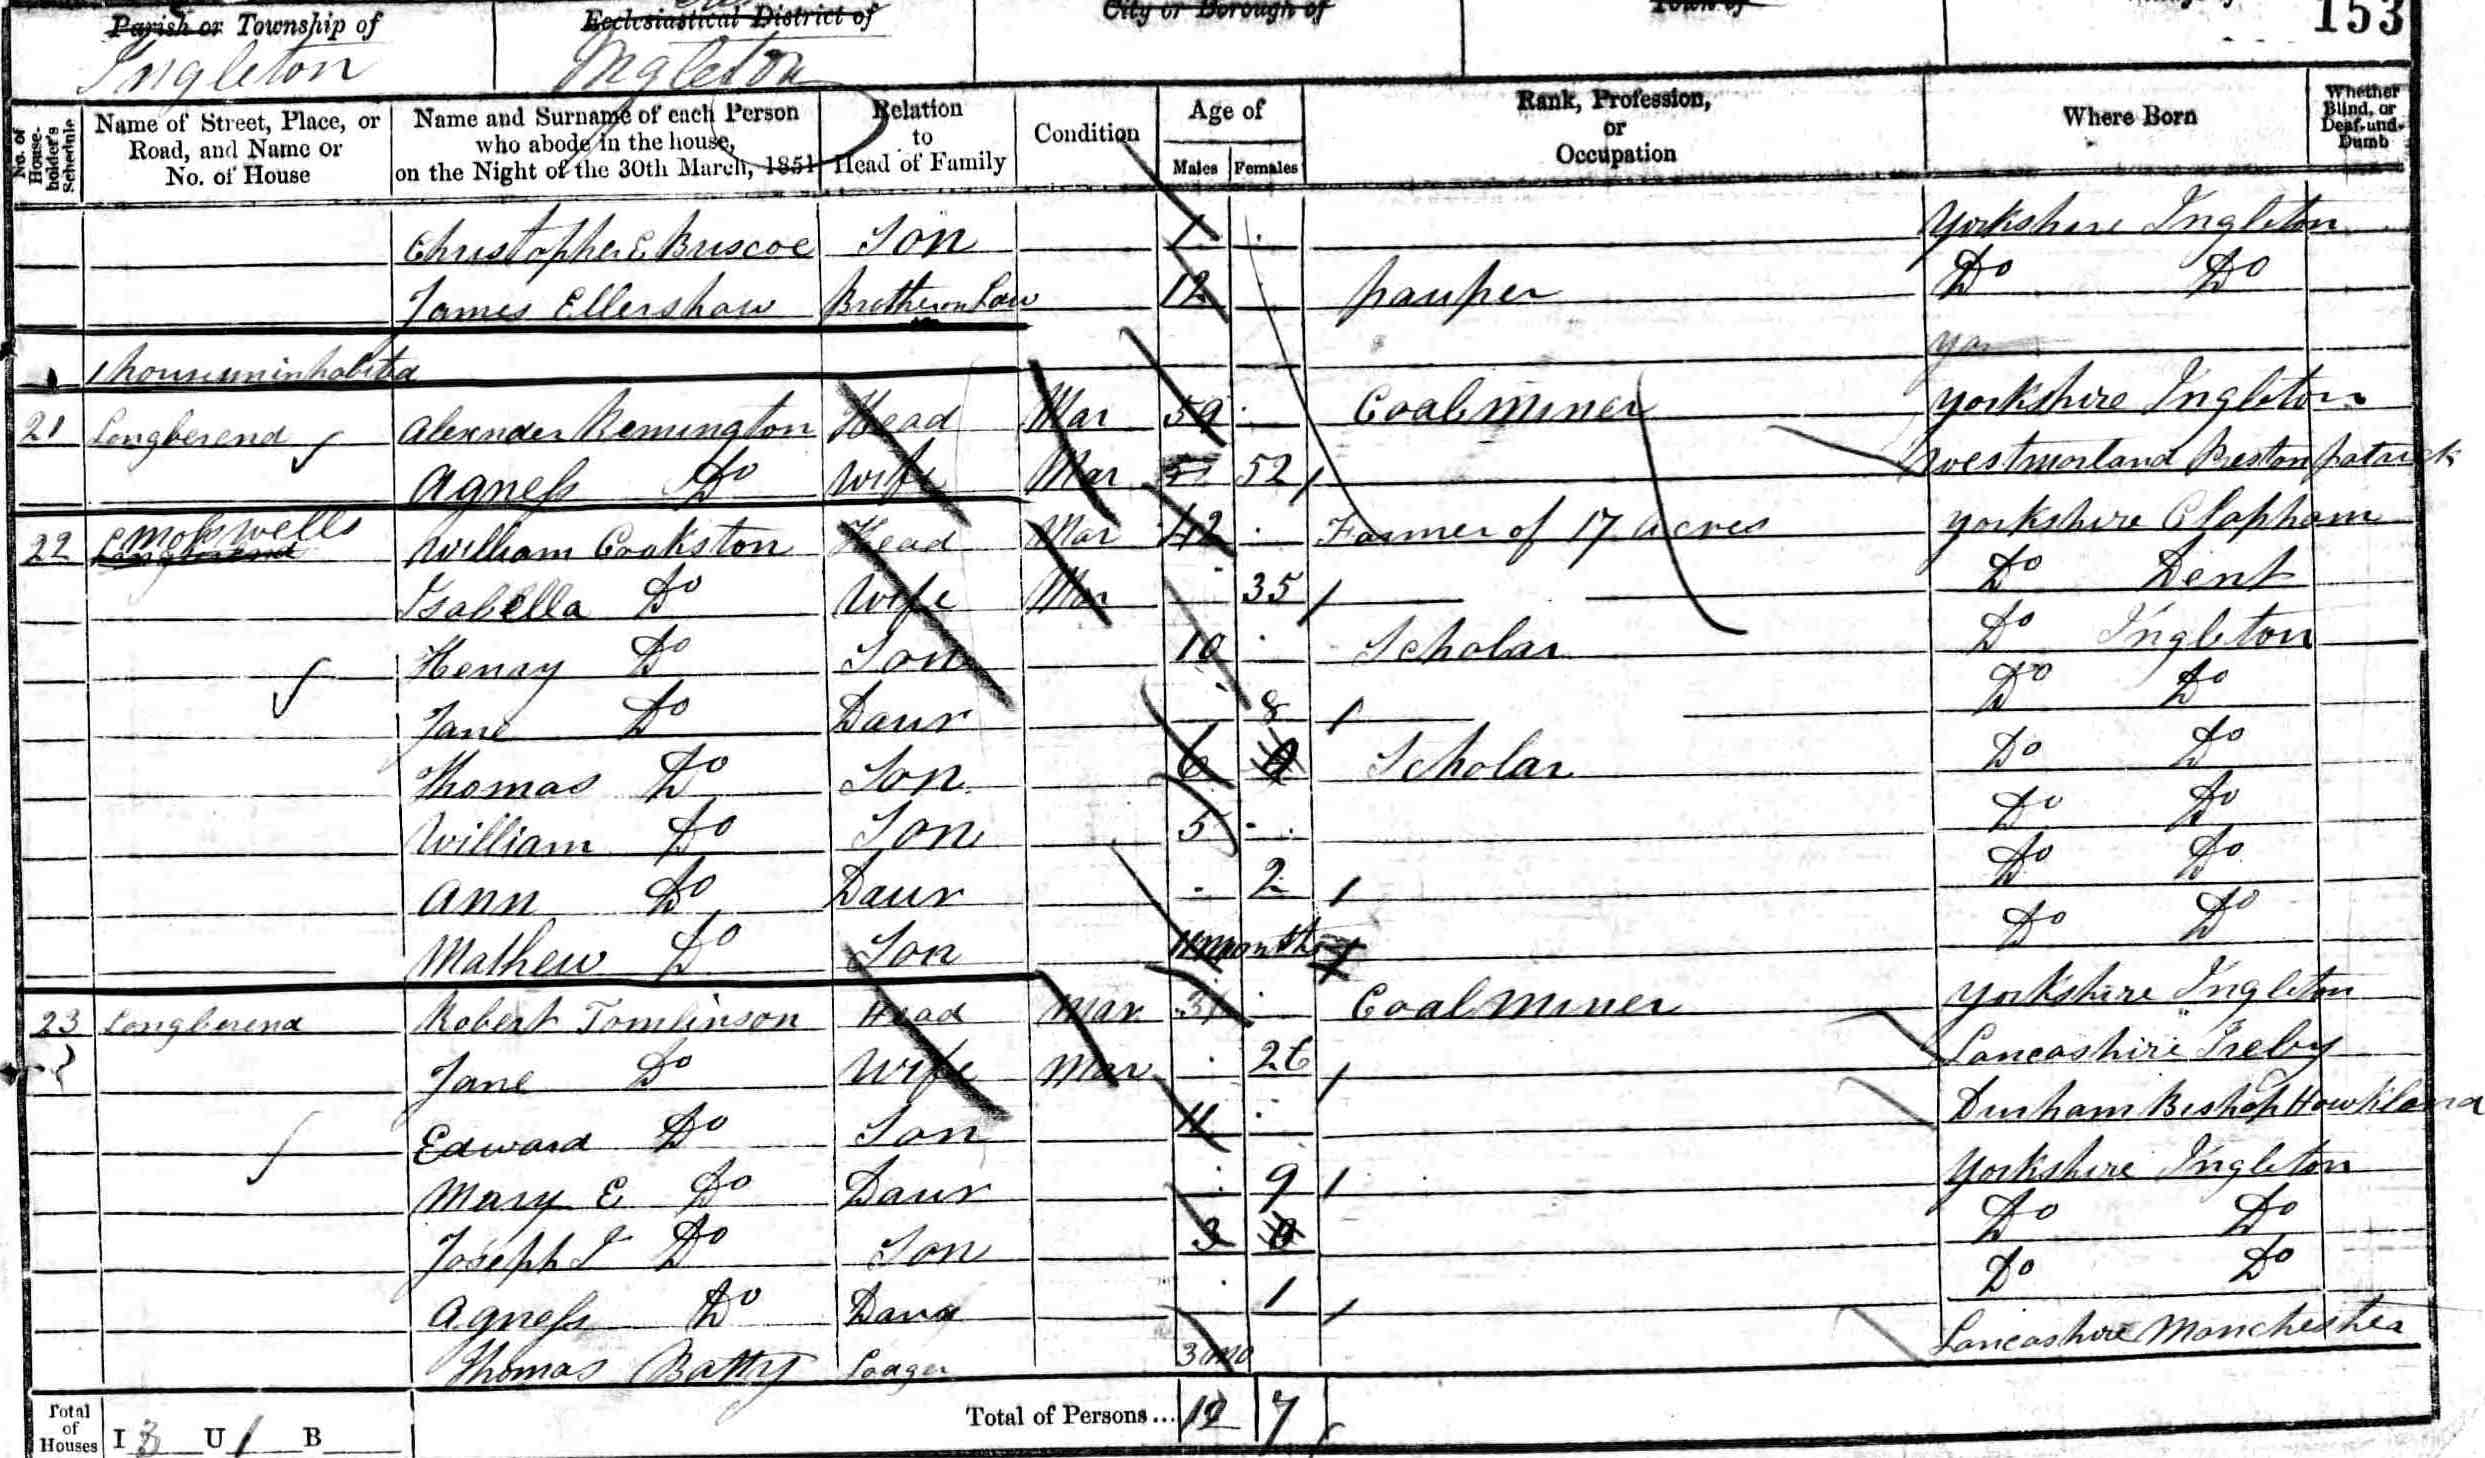 Parish or Township of
Ecclesiastical District of
City or Borough of
Town of
153
Ingleton
Ingleton
No. of House-holder's Schedule
Name of Street, Place, or Road, and Name or No. of House
Name and Surname of each Person who abode in the house, on the Night of the 30th March, 1851
Relation to Head of Family
Condition
Age of
Males
Females
Rank, Profession, or Occupation
Where Born
Whether Blind, or Deaf-and-Dumb
Christopher E Briscoe Son 1 Yorkshire Ingleton
James Ellershaw Brother in Law 12 pauper Do Do
1 house uninhabited Yor
21 Longberend Alexnder Remington Head Mar 59 Coal miner Yorkshire Ingleton
Agness Do Wife Mar 52 Westmorland Preston patrick
22 Mosswells Longberend William Cookston Head Mar 42 Farmer of 17 acres Yorkshire Clapham
Isabella Do Wife Mar 35 Do Dent
Henry Do Son 10 Scholar Do Ingleton
Jane Do Daur 8 Do Do
Thomas Do Son 6 Scholar Do Do
William Do Son 5 Do Do
Ann Do Daur 2 Do Do
Mathew Do Son 11 months Do Do
23 Longberend Robert Tomlinson Head Mar 31 Coal miner Yorkshire Ingleton
Jane Do Wife Mar 26 Lancashire Ireby
Edward Do Son 11 Durham Bishop Howkland
Mary E Do Daur 9 Yorkshire Ingleton
Joseph T Do Son 3 Do Do
Agness Do Daur 1 Do Do
Thomas Batty Lodger 3 mo Lancashire Manchester
Total of Houses I 3 U 1 B
Total of Persons... 12 7